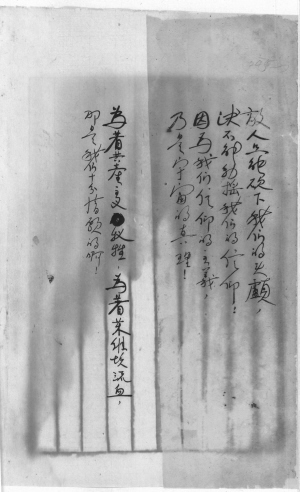 敌人只能砍下我们的头颅，
决不能动摇我们的信仰！
因为我们信仰的主義，
乃是宇宙的真理！
為着共產主义牺牲，為着苏维埃流血，
那是我们十分情願的啊！